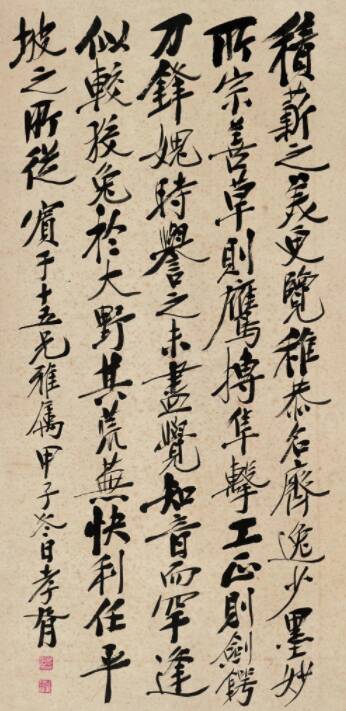 積薪之美更覽稚恭名齊逸少墨妙
所宗善草則鷹搏隼擊工正則劍鍔
刀鋒愧時譽之未盡覺知音而罕逢
似較狡兔於大野其荒蕪快利任平
坡之所從 賓于十五兄雅屬 甲子冬日孝胥